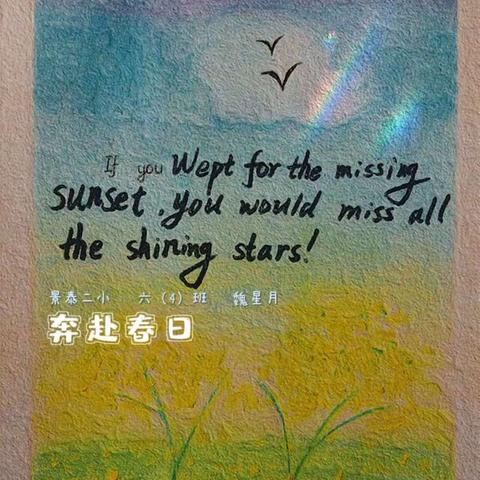 If you Wept for the missing
sunset, you would miss all
the shining stars!
景泰二小 六（4）班 魏星月
奔赴春日